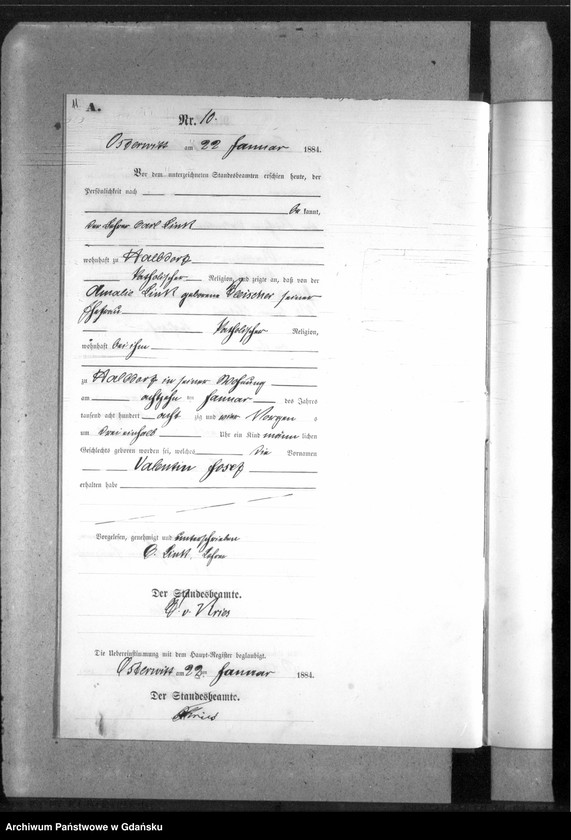 A.
Nr. 10.
Osterwitt am 22 Januar 1884.
Vor dem unterzeichneten Standesbeamten erschien heute, der
Persönlichkeit nach
kannt,
der Lehrer Carl Link
wohnhaft zu
katholischer Religion, und zeigte an, daß von der
Amalie Link geborene seiner
Ehefrau
katholischer Religion,
wohnhaft bei ihm
zu in seiner Wohnung
am achtzehn ten Januar des Jahres
tausend acht hundert acht zig und vier Morgen s
um drei einhalb Uhr ein Kind männ lichen
Geschlechts geboren worden sei, welches die Vornamen
Valentin Josef
erhalten habe
Vorgelesen, genehmigt und unterschrieben
C. Link, Lehrer
Der Standesbeamte.
v. Kries
Die Uebereinstimmung mit dem Haupt-Register beglaubigt.
Osterwitt am 22 ten Januar 1884.
Der Standesbeamte.
Kries
Archiwum Państwowe w Gdańsku